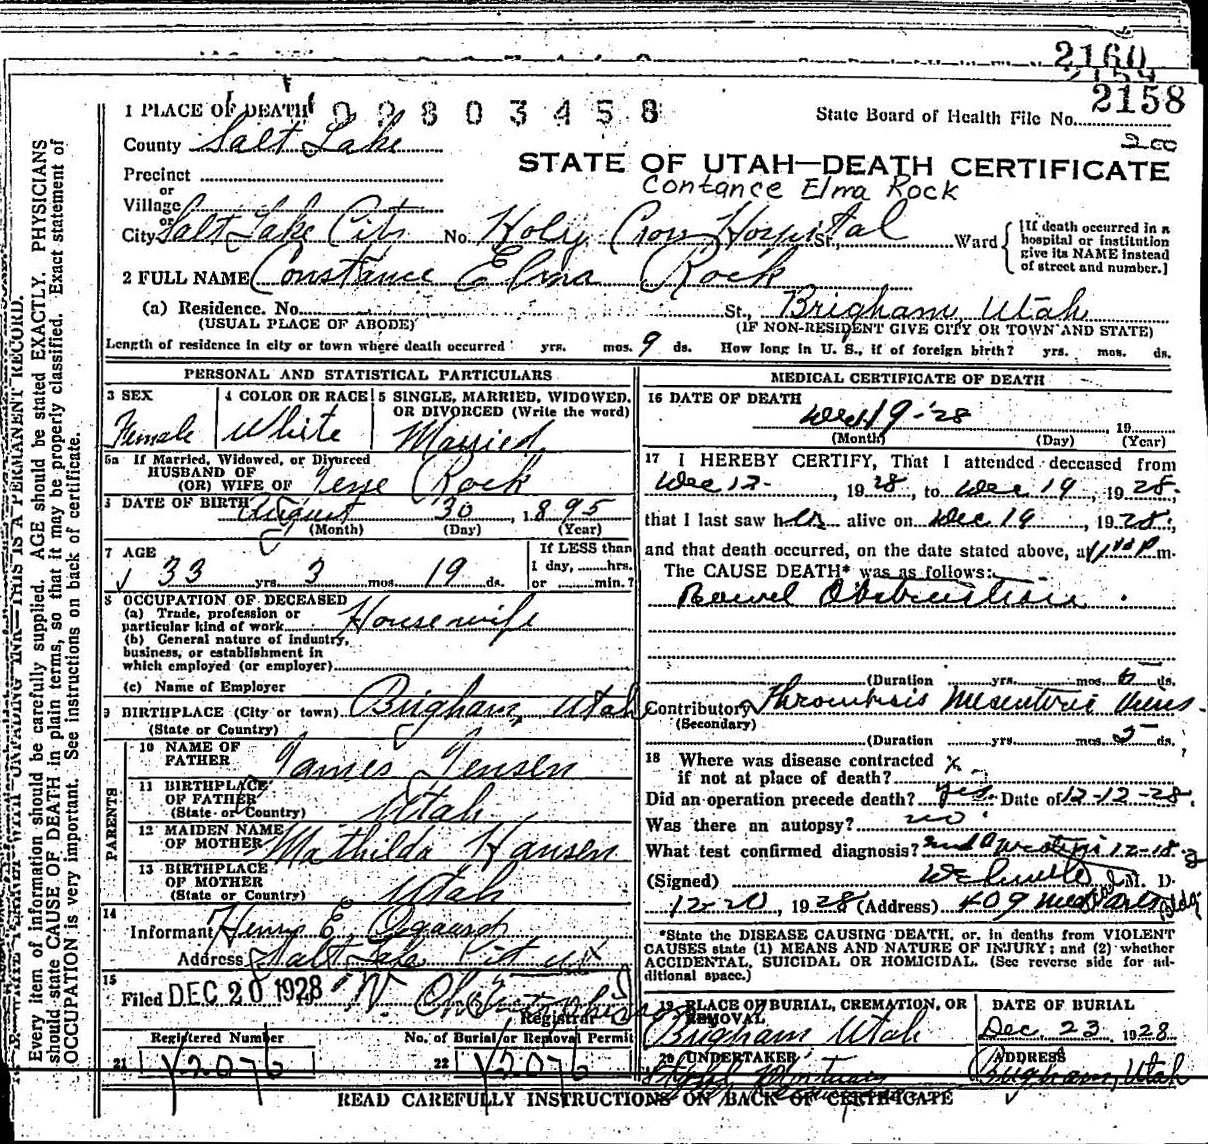 2160
2159
2158
1 PLACE OF DEATH 02803458
State Board of Health File No.
County Salt Lake
200
STATE OF UTAH—DEATH CERTIFICATE
Precinct
Contance Elma Rock
or
Village
or
City Salt Lake City No. Holy Cross Hospital St., Ward
[If death occurred in a hospital or institution give its NAME instead of street and number.]
2 FULL NAME Constance Elma Rock
(a) Residence. No. St., Brigham, Utah
(USUAL PLACE OF ABODE) (IF NON-RESIDENT GIVE CITY OR TOWN AND STATE)
Length of residence in city or town where death occurred yrs. mos. 9 ds. How long in U. S., if of foreign birth? yrs. mos. ds.
PERSONAL AND STATISTICAL PARTICULARS
3 SEX 4 COLOR OR RACE 5 SINGLE, MARRIED, WIDOWED, OR DIVORCED (Write the word)
Female White Married
5a If Married, Widowed, or Divorced
HUSBAND OF
(OR) WIFE OF Jesse Rock
6 DATE OF BIRTH August 30, 1895
(Month) (Day) (Year)
7 AGE If LESS than
33 yrs. 3 mos. 19 ds. 1 day, hrs.
or min.?
8 OCCUPATION OF DECEASED
(a) Trade, profession or
particular kind of work Housewife
(b) General nature of industry,
business, or establishment in
which employed (or employer)
(c) Name of Employer
9 BIRTHPLACE (City or town) Brigham, Utah
(State or Country)
PARENTS
10 NAME OF
FATHER James Jensen
11 BIRTHPLACE
OF FATHER Utah
(State or Country)
12 MAIDEN NAME
OF MOTHER Mathilda Hansen
13 BIRTHPLACE
OF MOTHER Utah
(State or Country)
14
Informant Henry E.
Address Salt Lake City Ut
15
Filed DEC 20 1928
Registrar
Registered Number No. of Burial or Removal Permit
21 Y2076 22 Y2076
MEDICAL CERTIFICATE OF DEATH
16 DATE OF DEATH
Dec 19-'28 19
(Month) (Day) (Year)
17 I HEREBY CERTIFY, That I attended deceased from
Dec 12, 1928, to Dec 19, 1928,
that I last saw her alive on Dec 19, 1928,
and that death occurred, on the date stated above, at m.
The CAUSE DEATH* was as follows:
Bowel Obstruction
(Duration yrs. mos. ds.
Contributory Thrombosis Mesenteric Veins
(Secondary)
(Duration yrs. mos. 5 ds.
18 Where was disease contracted
if not at place of death? x
Did an operation precede death? yes. Date of 12-12-28
Was there an autopsy? no
What test confirmed diagnosis? 2nd Operation 12-18
(Signed) M. D.
12-20, 1928 (Address) 409 Med Arts Bldg
*State the DISEASE CAUSING DEATH, or, in deaths from VIOLENT
CAUSES state (1) MEANS AND NATURE OF INJURY; and (2) whether
ACCIDENTAL, SUICIDAL OR HOMICIDAL. (See reverse side for ad-
ditional space.)
19 PLACE OF BURIAL, CREMATION, OR REMOVAL DATE OF BURIAL
Brigham Utah Dec. 23 1928
20 UNDERTAKER ADDRESS
Brigham, Utah
READ CAREFULLY INSTRUCTIONS ON BACK OF CERTIFICATE
THIS IS A PERMANENT RECORD.
Every item of information should be carefully supplied. AGE should be stated EXACTLY. PHYSICIANS
should state CAUSE OF DEATH in plain terms, so that it may be properly classified. Exact statement of
OCCUPATION is very important. See instructions on back of certificate.